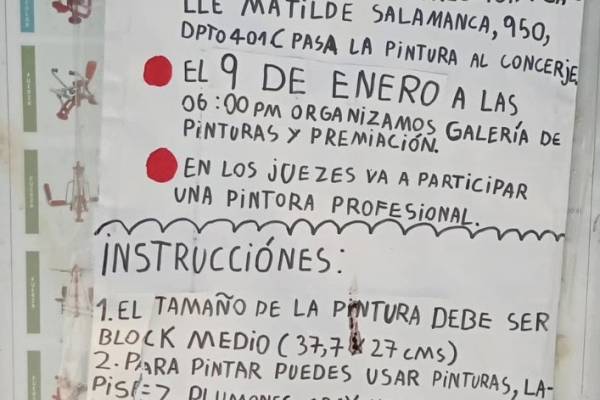 LLE MATILDE SALAMANCA, 950,
DPTO401C PASA LA PINTURA AL CONCERJE
EL 9 DE ENERO A LAS
06:00 PM ORGANIZAMOS GALERÍA DE
PINTURAS Y PREMIACIÓN.
EN LOS JUEZES VA A PARTICIPAR
UNA PINTORA PROFESIONAL.
INSTRUCCIÓNES:
1. EL TAMAÑO DE LA PINTURA DEBE SER
BLOCK MEDIO (37,7 X 27 CMS)
2. PARA PINTAR PUEDES USAR PINTURAS, LA-
PLUMONES